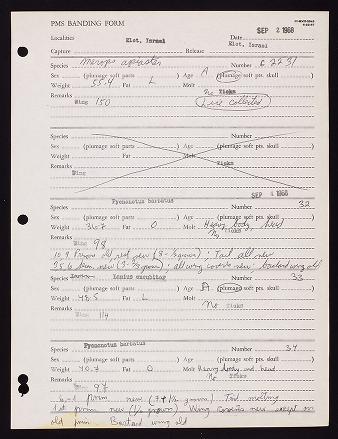 PMS BANDING FORM
SEP 2 1968
Localities Elat, Israel Date
Elat, Israel
Capture Release
Species Merops apiaster Number C 2231
Sex (plumage soft parts) Age A (plumage soft pts. skull)
Weight 55.4 Fat L Molt No Ticks
Remarks (Lice collected)
Wing 150
Species Number
Sex (plumage soft parts) Age (plumage soft pts. skull)
Weight Fat Molt Ticks
Remarks
Wing
SEP 1968
Pycnonotus barbatus
Species Number 32
Sex (plumage soft parts) Age (plumage soft pts. skull)
Weight 36.7 Fat 0 Molt Heavy body, head
Remarks No Ticks
Wing 98
old, rest new; Tail all new
all wing coverts new, bastard wing old
Species Lanius excubitor Number 33
Sex (plumage soft parts) Age A (plumage soft pts. skull)
Weight 48.5 Fat L Molt
Remarks No Ticks
Wing 114
Pycnonotus barbatus
Species Number 34
Sex (plumage soft parts) Age (plumage soft pts. skull)
Weight 40.7 Fat 0 Molt Heavy body and head
Remarks No Ticks
Wing 97
new Tail molting
1st prim new Wing coverts new except on
old prim Bastard wing old